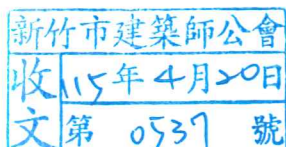 新竹市建築師公會
收文
115年4月20日
第 0537 號